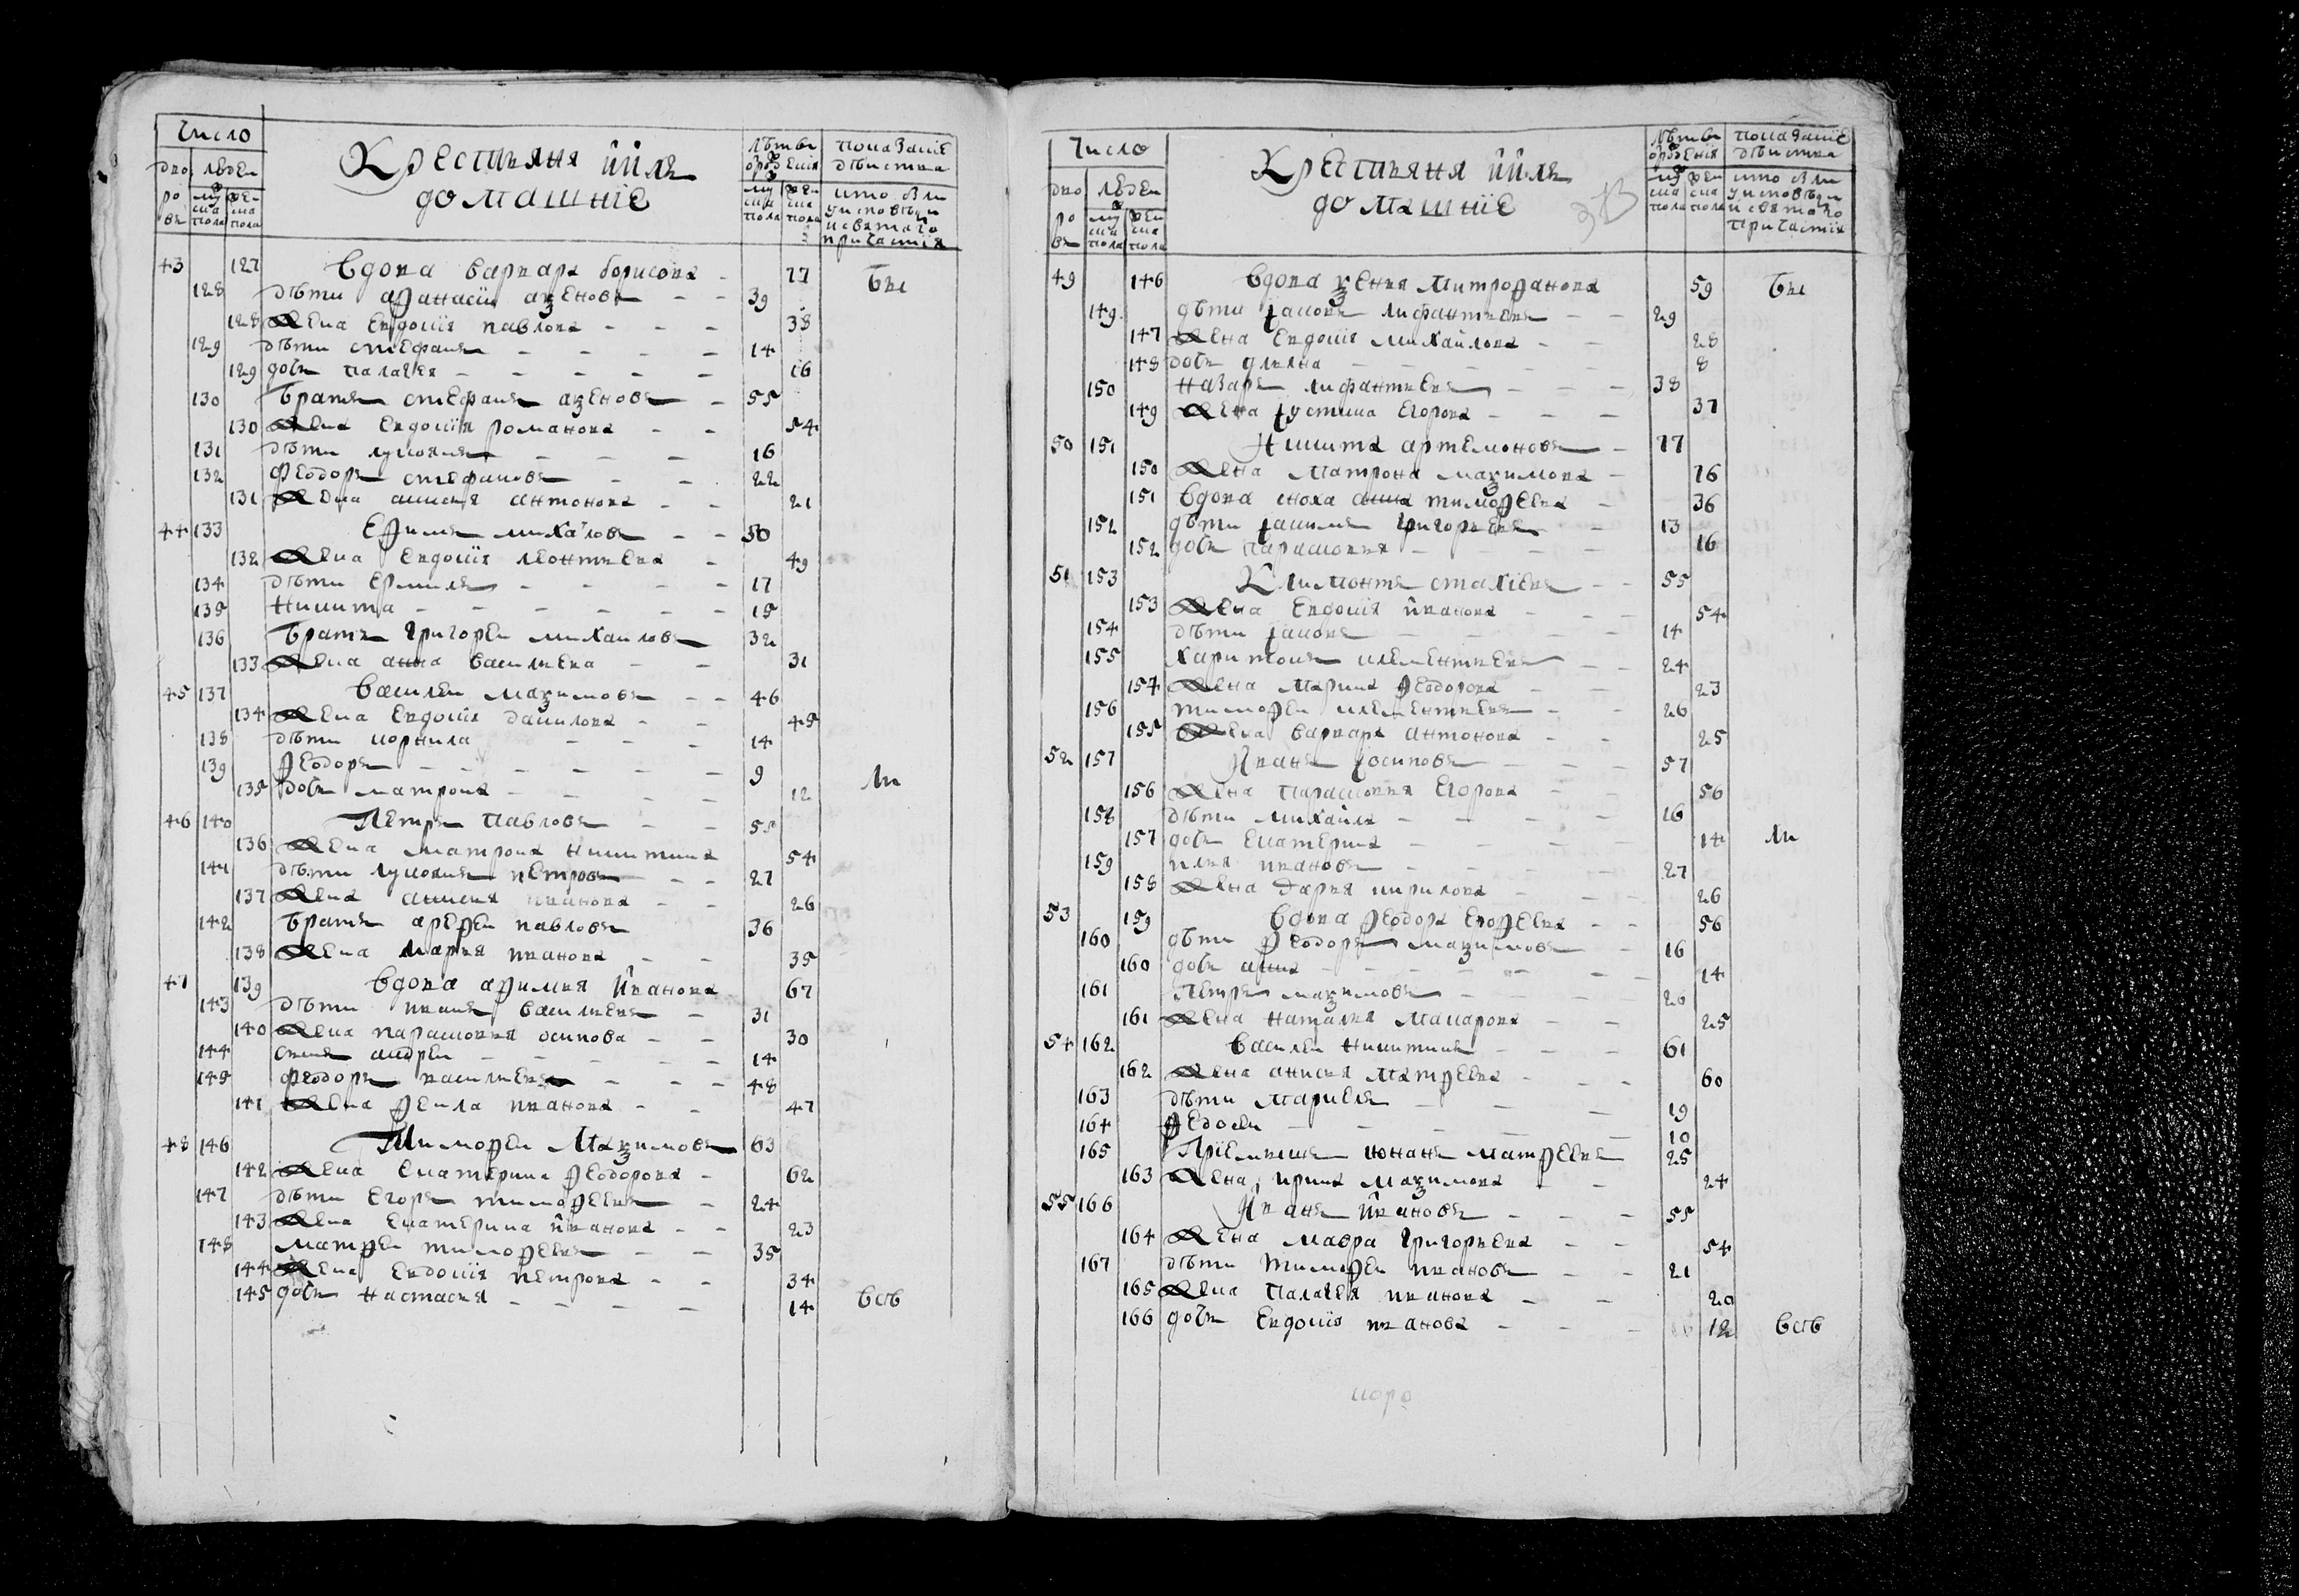 Число
дворовъ
людеи
муска пола
женска пола
Крестьяня ійихъ
домашніе
лѣтъ от рождения
муска пола
женска пола
показание действа
кто был у исповѣди и святаго причастия
43 127 Вдова варвара борисова - 77 бы
128 дѣти афанасіи аѯеновъ - - 39
128 жена евдокія павлова - - - 38
129 дѣти стефанъ - - - - 14
129 дочь палагея - - - - - 16
130 братъ стефанъ аѯеновъ - 55
130 жена евдокія романова - - 54
131 дѣти лукоянъ - - - 16
132 феодоръ стефановъ - - 22
131 жена анисия антонова - - 21
44 133 Ефимъ михаиловъ - - 50
132 жена евдокія леонтьева - 49
134 дѣти ермилъ - - - - 17
135 никита - - - - - - 15
136 братъ григореи михаиловъ 32
133 жена анна васильева - - 31
45 137 Василеи маѯимовъ - - 46
134 жена евдокія данилова - - 45
138 дѣти корнила - - - 14
139 ѳеодоръ - - - - - - 9
135 дочь матрона - - - - 12 ли
46 140 Петръ павловъ - - 55
136 жена матрона никитина 54
141 дѣти лукоянъ петровъ - - 27
137 жена анисия иванова - - 26
142 братъ арефеи павловъ 36
138 жена марья иванова - - 35
47 139 Вдова афимия иванова 67
143 дѣти иванъ васильевъ - 31
140 жена парасковья осипова - - 30
144 сынъ андреи - - - - - 14
145 феодоръ васильевъ - - - 48
141 жена ѳекла иванова - - 47
48 146 Тимоѳеи Маѯимовъ 63
142 жена екатерина ѳеодорова - 62
147 дѣти егоръ тимоѳеевъ - 24
143 жена екатерина иванова - - 23
148 матѳеи тимоѳеевъ - - 35
144 жена евдокія петрова - - 34
145 дочь настасья - - - - 14 всѣ
Число
дворовъ
людеи
муска пола
женска пола
Крестьяня ійихъ
домашніе
лѣтъ от рождения
муска пола
женска пола
показание действа
кто был у исповѣди и святаго причастия
49 146 Вдова ѯения митрофанова 59 бы
149 дѣти яковъ лифантьевъ - - 29
147 жена евдокія михаилова - - 28
148 дочь ульяна - - - - - 8
150 назаръ лифантьевъ - - - 38
149 жена устинa егорова - - - 37
50 151 Никита артемоновъ - 77
150 жена матрона маѯимова - 76
151 вдова сноха анна тимоѳеева - 36
152 дѣти якимъ григорьевъ - 13
152 дочь парасковья - - - - 16
51 153 Климонтъ стахіевъ - - 55
153 жена евдокія иванова - - 54
154 дѣти яковъ - - - - 14
155 харитонъ клементьевъ - - 24
154 жена марина ѳеодорова - - 23
156 тимоѳеи клементьевъ - - 26
155 жена варвара антонова - - 25
52 157 Иванъ осиповъ - - - 57
156 жена парасковья егорова - - 56
158 дѣти михаила - - - - 16
157 дочь екатерина - - - - 14 ли
159 илья ивановъ - - - - 27
158 жена дарья кирилова - - - 26
53 159 Вдова ѳеодора ероѳеева - - 56
160 дѣти ѳеодоръ маѯимовъ - 16
160 дочь анна - - - - - - - 14
161 петръ маѯимовъ - - - - 26
161 жена наталья макарова - - 25
54 162 Василеи никитинъ - - - 61
162 жена анисия матѳеева - - - 60
163 дѣти маркелъ - - - 19
164 ѳедосеи - - - - - - 10
165 пріемышъ конанъ матѳеевъ 25
163 жена ирина маѯимова - - 24
55 166 Иванъ ивановъ - - - 55
164 жена мавра григорьева - - 54
167 дѣти тимоѳеи ивановъ - - 21
165 жена палагея иванова - - 20
166 дочь евдокія иванова - - - 12 всѣ
коро